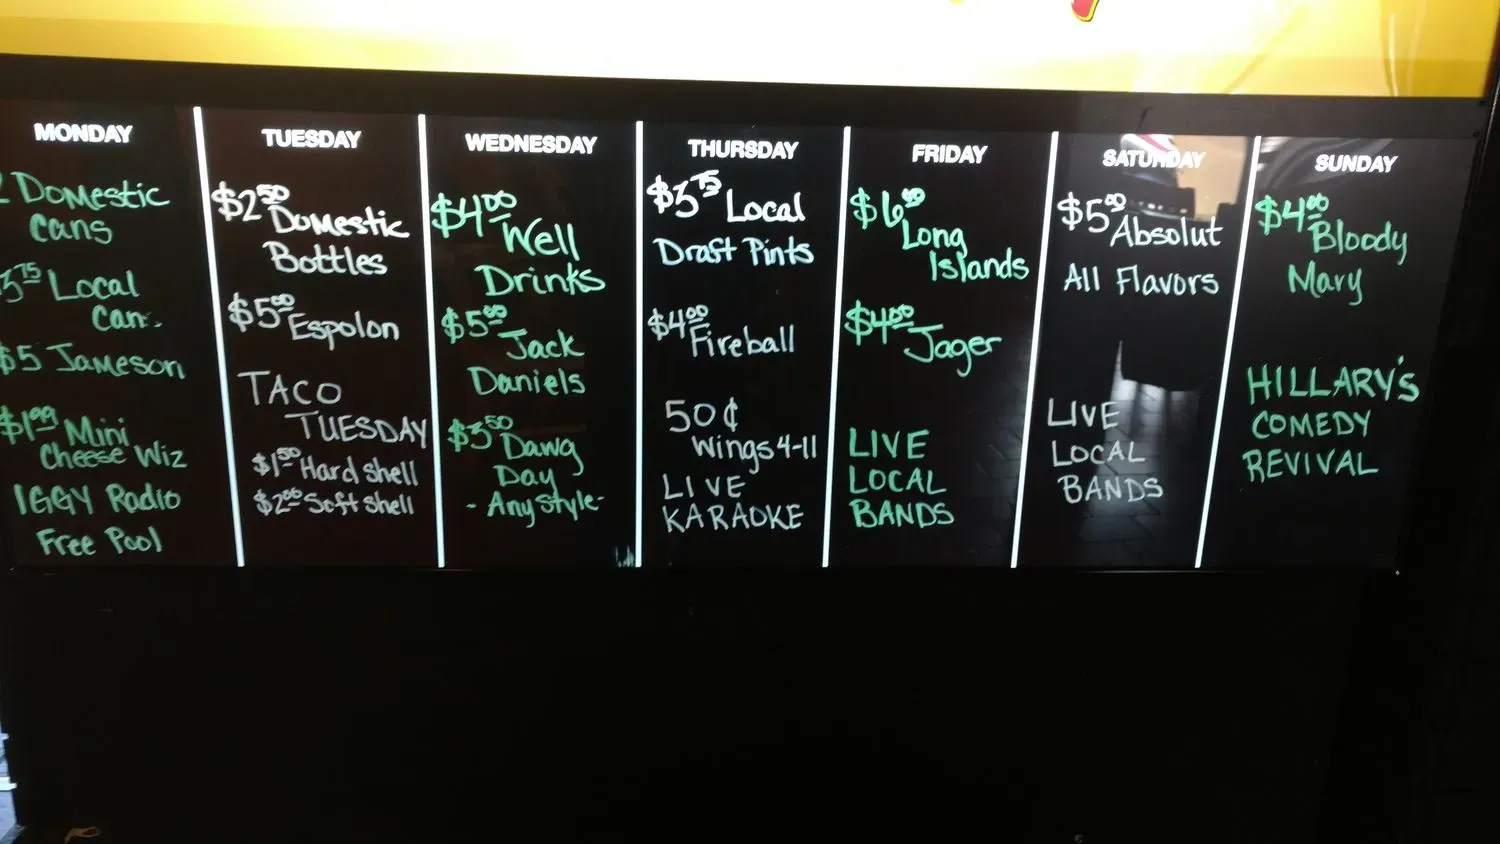 MONDAY
2 Domestic
cans
3.75 Local
can.
$5 Jameson
$1.99 Mini
Cheese Wiz
IGGY Radio
Free Pool
TUESDAY
$2.50 Domestic
Bottles
$5.00 Espolon
TACO
TUESDAY
$1.50 Hard shell
$2.00 Soft shell
WEDNESDAY
$4.00 Well
Drinks
$5.00 Jack
Daniels
$3.50 Dawg
Day
- Any style -
THURSDAY
$3.75 Local
Draft Pints
$4.00 Fireball
50¢
Wings 4-11
LIVE
KARAOKE
FRIDAY
$6.00 Long
Islands
$4.00 Jager
LIVE
LOCAL
BANDS
SATURDAY
$5.00 Absolut
All Flavors
LIVE
LOCAL
BANDS
SUNDAY
$4.00 Bloody
Mary
HILLARY'S
COMEDY
REVIVAL